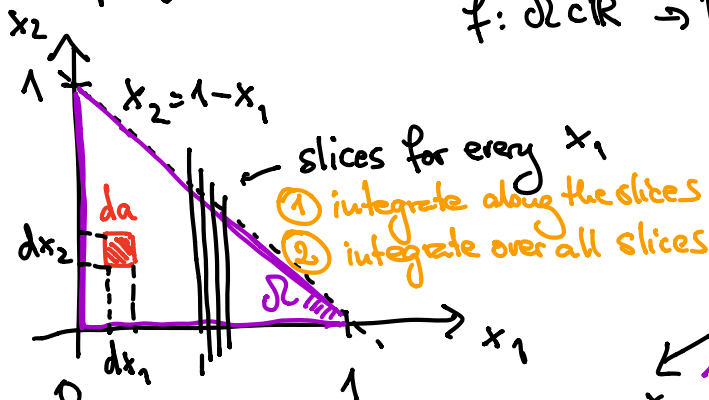 f: Ω ⊂ ℝ →
x₂
1
x₂ = 1 - x₁
slices for every x₁
① integrate along the slices
② integrate over all slices
da
dx₂
Ω
x₁
dx₁
0
1